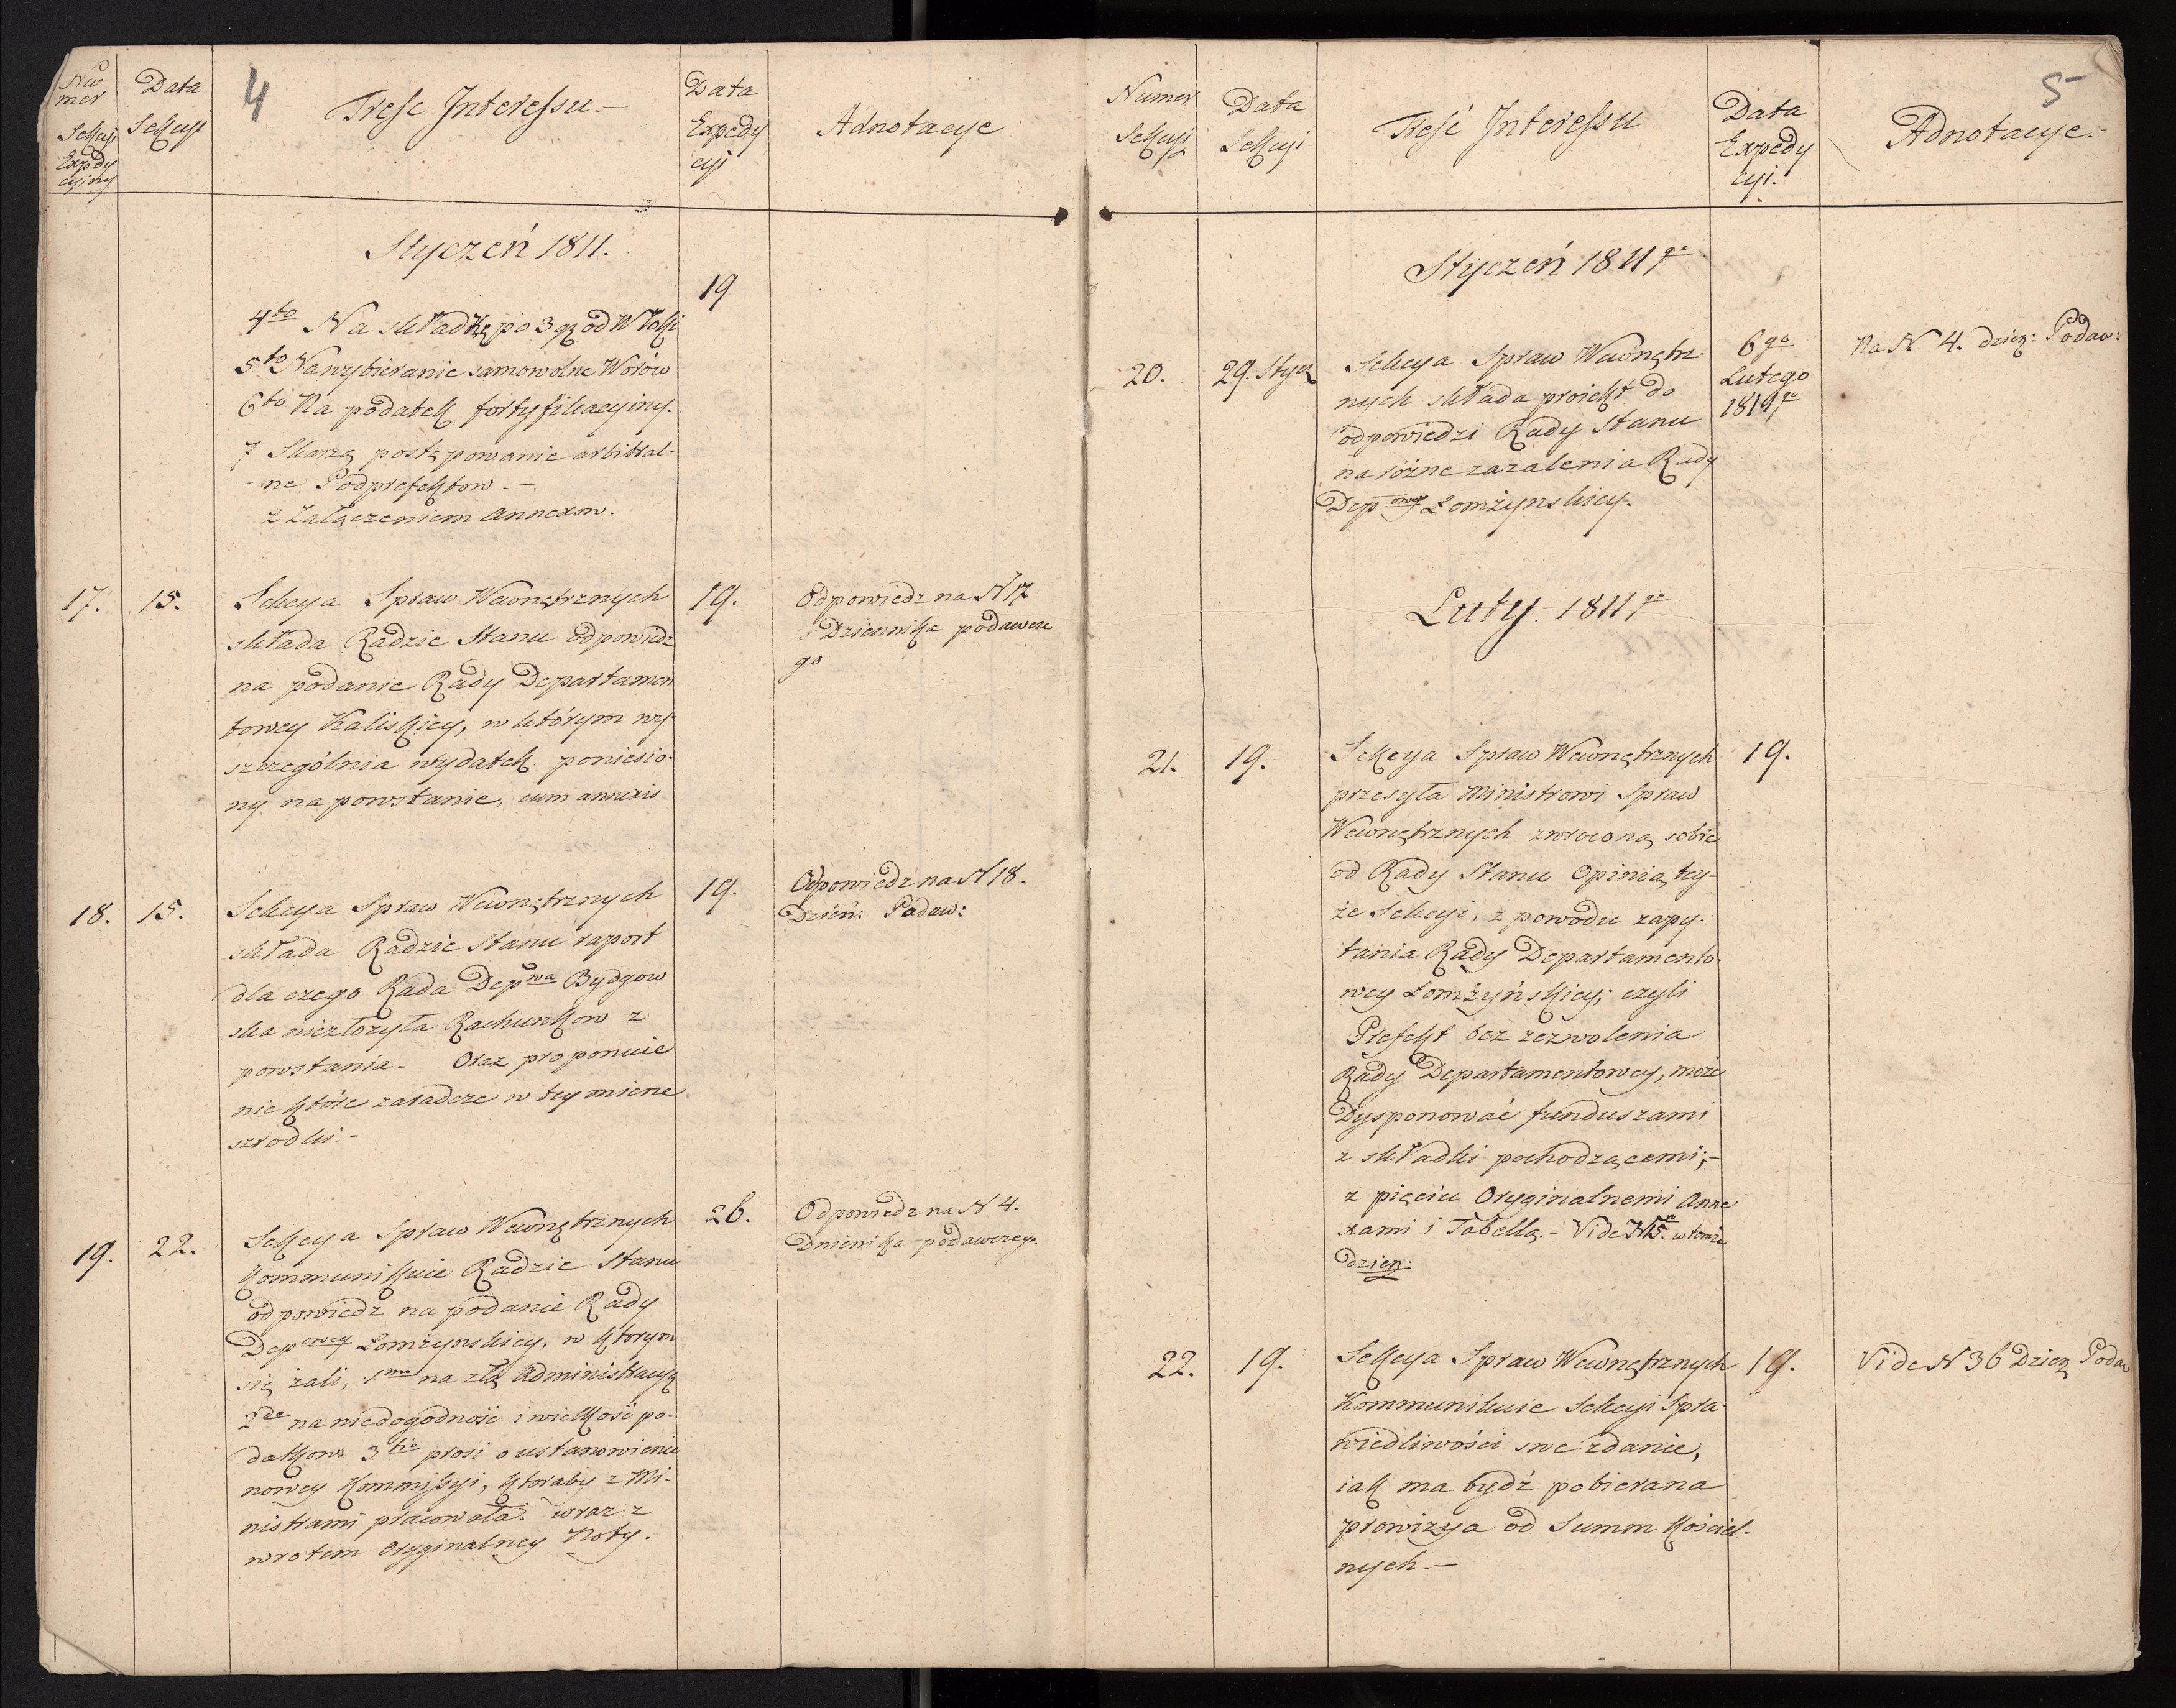 4
Nu
mer
Sekcyi
Expedy
cyiny
Data
Sekcyi
Treść Interessu.—
Data
Expedy
cyi
Adnotacye
Styczeń 1811.
4to Na składkę po 3 gz od Włoki
19
5to Na wybieranie samowolne Wołów
6to Na podatek fortyfikacyiny.
7 Skarzą postępowanie arbitral-
-ne Podprefektow.—
z Załączeniem Annexow.
17.
15.
Sekcya Spraw Wewnętrznych
składa Radzie Stanu odpowiedz
na podanie Rady Departamen
towey Kaliskiey, w którym wy-
szczególnia wydatek poniesio-
ny na powstanie, cum annexis
19.
Odpowiedz na N 17
Dziennika podawcze
go
18.
15.
Sekcya Spraw Wewnętrznych
składa Radzie Stanu raport
dla czego Rada Depwa Bydgow
ska niezłożyła Rachunkow z
powstania- Oraz proponuie
niektóre zaradcze w tey mierze
szrodki.-
19.
Odpowiedz na N 18.
Dzień: Podaw:
19.
22.
Sekcya Spraw Wewnętrznych
Kommunikuie Radzie Stanu
odpowiedz na podanie Rady
Depowey Łomżynskiey, w ktorym
się żali, 1mo na złą Administracyą
2do na niedogodność i wielkość po-
datkow. 3tio prosi o ustanowienie
nowey Kommissyi, ktoraby z Mi-
nistrami pracowała. wraz z
wrotem Oryginalney Noty.
26.
Odpowiedz na N 4.
Dnienika podawczey.
5
Numer
Sekcyi
Data
Sekcyi
Treść Interessu
Data
Expedy
cyi.
Adnotacye.-
Styczeń 1811go
20.
29. Stycz
Sekcya Spraw Wewnętrz-
nych składa proiekt do
odpowiedzi Rady Stanu
na różne zażalenia Rady
Depowey Łomżynskiey.
6go
Lutego
1811go
Na N 4. dzien: Podaw:
Luty. 1811go
21.
19.
Sekcya Spraw Wewnętrznych
przesyła Ministrowi Spraw
Wewnętrznych zwroconą sobie
od Rady Stanu Opinią tey-
że Sekcyi, z powodu zapy-
tania Rady Departamento-
wey Łomżyńskiey; czyli
Prefekt bez zezwolenia
Rady Departamentowey, może
Dysponować funduszami
z składki pochodzącemi;-
z pięciu Oryginalnemi Anne
xami i Tabellą.- Vide N 15. w tomże
dzien:
19.
22.
19.
Sekcya Spraw Wewnętrznych
Kommunikuie Sekcyi Spra-
wiedliwości swe zdanie,
iak ma bydź pobierana
prowizya od Summ Kościel-
nych.—
19.
Vide N 36 Dzien Podaw